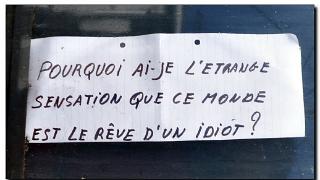 POURQUOI AI-JE L'ETRANGE
SENSATION QUE CE MONDE
EST LE RÊVE D'UN IDIOT ?